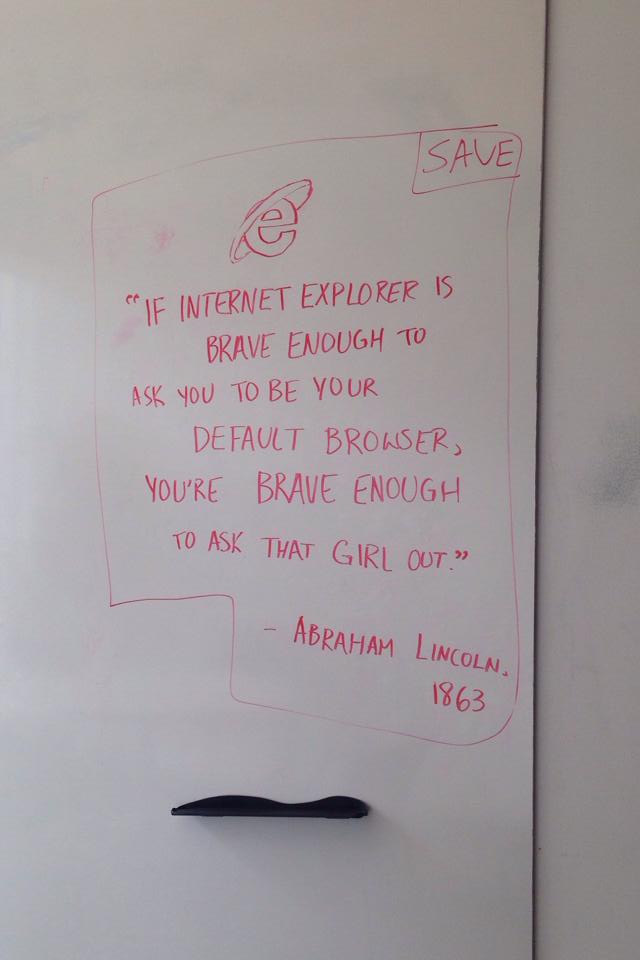 SAVE
e
"IF INTERNET EXPLORER IS
BRAVE ENOUGH TO
ASK YOU TO BE YOUR
DEFAULT BROWSER,
YOU'RE BRAVE ENOUGH
TO ASK THAT GIRL OUT."
- ABRAHAM LINCOLN.
1863